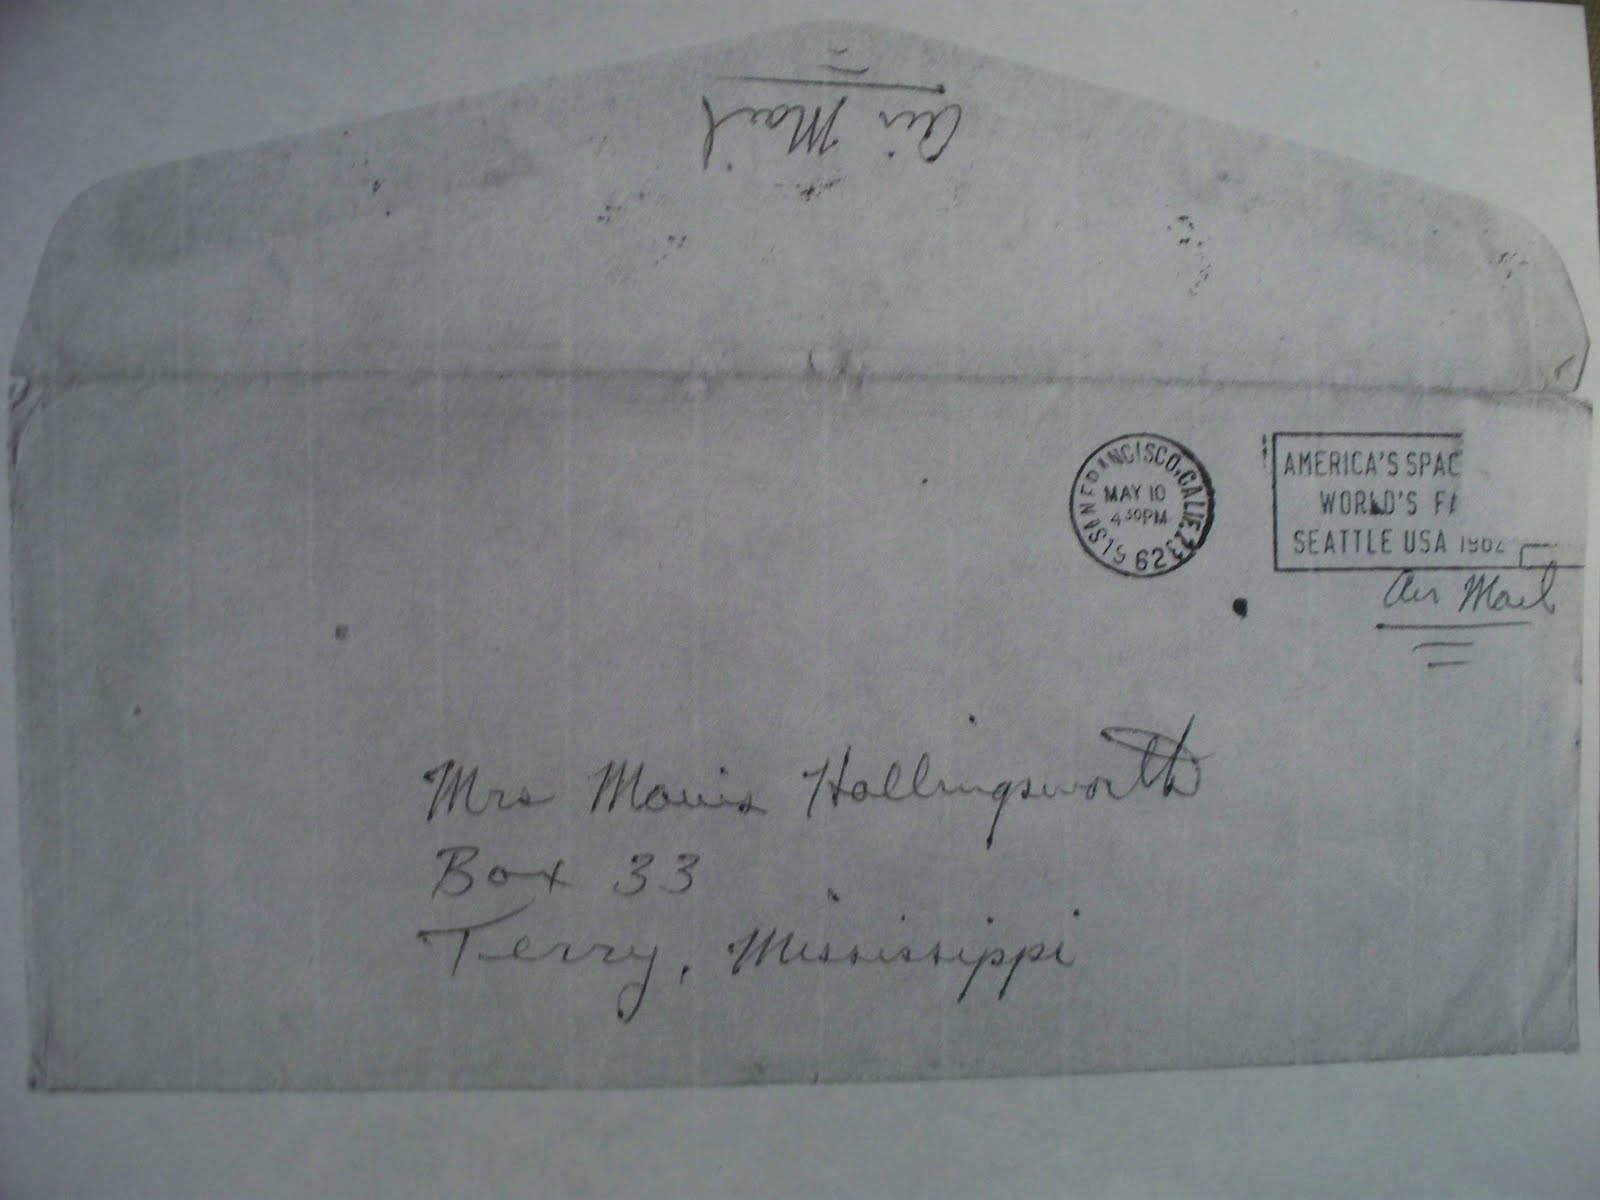 Air Mail
SAN FRANCISCO, CALIF.
MAY 10
4 30 PM
62
AMERICA'S SPAC
WORLD'S FA
SEATTLE USA 1962
Air Mail
Mrs Hollingsworth
Box 33
Terry, Mississippi